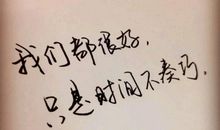 我们都很好，
只是时间不凑巧.